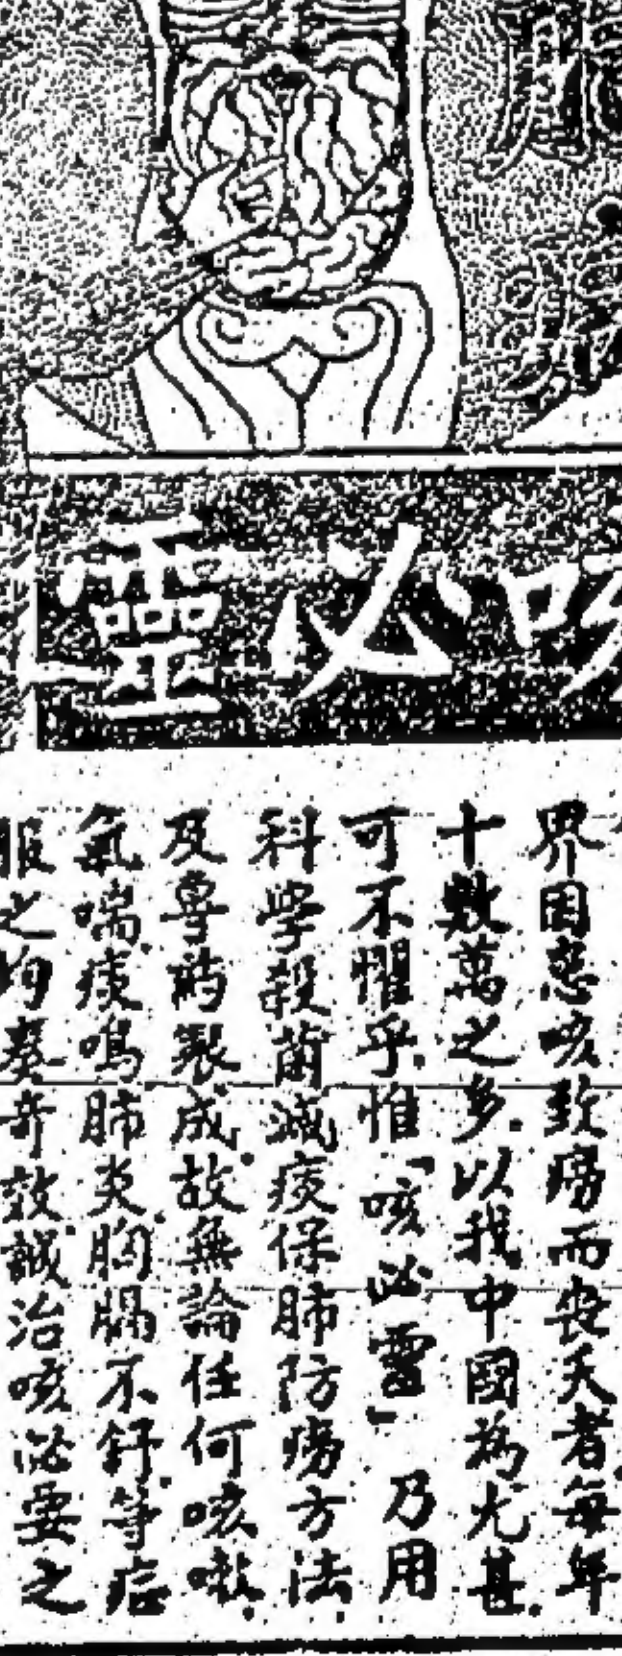 咳必靈
界因患咳致癆而丧夭者每年
十數萬之多以我中國為尤甚
可不懼乎惟「咳必靈」乃用
科學殺菌滅痰保肺防癆方法
及專药製成故無論任何咳嗽
氣喘痰鳴肺炎胸膈不舒等症
服之均奏奇效誠治咳必要之